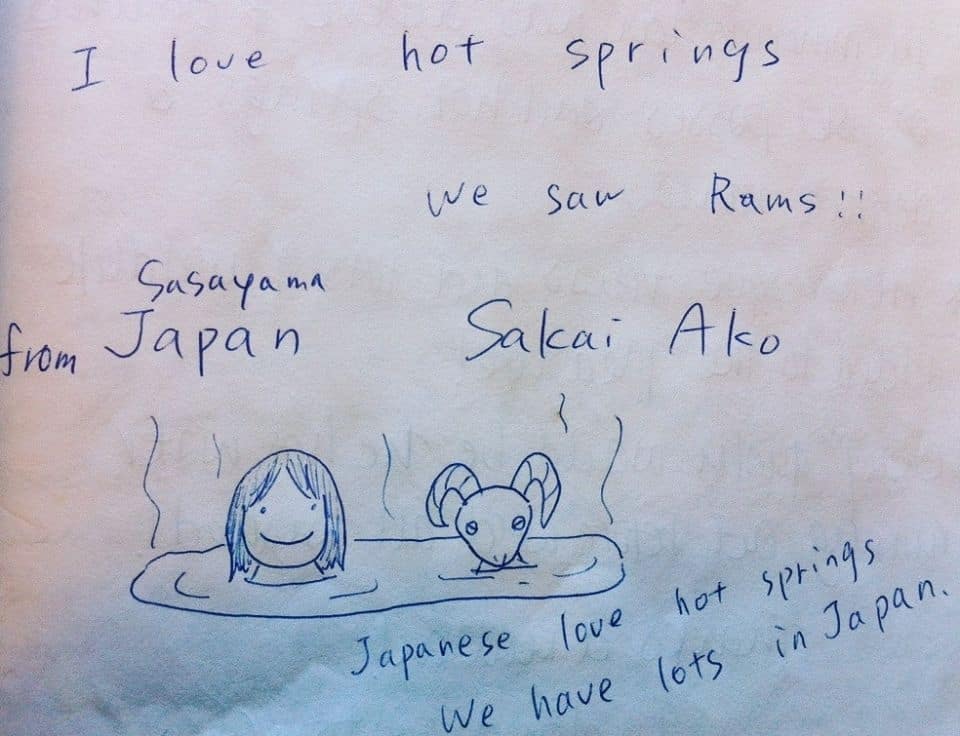 I love hot springs
We saw Rams!!
Sasayama
from Japan Sakai Ako
Japanese love hot springs
We have lots in Japan.